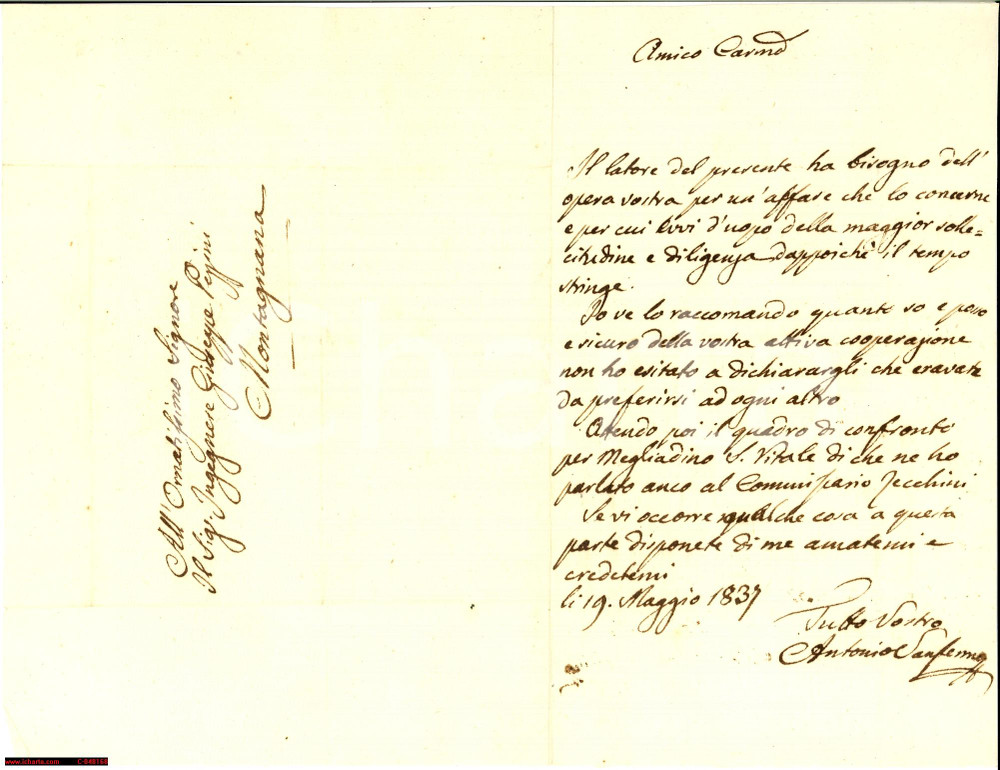 All' Ornatissimo Signore
Il Sig.r Ingegnere Giuseppe Peppini
Montagnana
Amico Carmo
Il latore del presente ha bisogno dell'
opera vostra per un' affare che lo concerne
e per cui evvi d'uopo della maggior solle=
citudine e diligenza dappoichè il tempo
stringe.
Io ve lo raccomando quanto so e posso
e sicuro della vostra attiva cooperazione
non ho esitato a dichiarargli che eravate
da preferirsi ad ogni altro
Attendo poi il quadro di confronto
per Megliadino S. Vitale di che ne ho
parlato anco al Commissario Zecchini
Se vi occorre qualche cosa a questa
parte disponete di me amatemi e
credetemi
li 19. Maggio 1837
Tutto Vostro
Antonio Sanfermo
www.lcharta.com C-949168